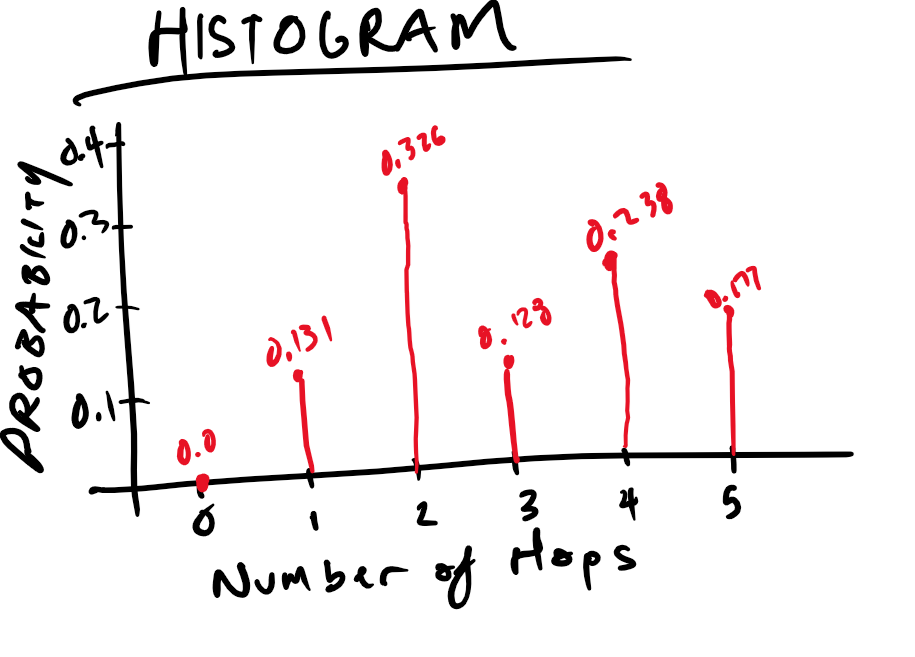 HISTOGRAM
PROBABILITY
0.4
0.3
0.2
0.1
0.0
0.131
0.326
0.128
0.238
0.177
0 1 2 3 4 5
Number of Hops